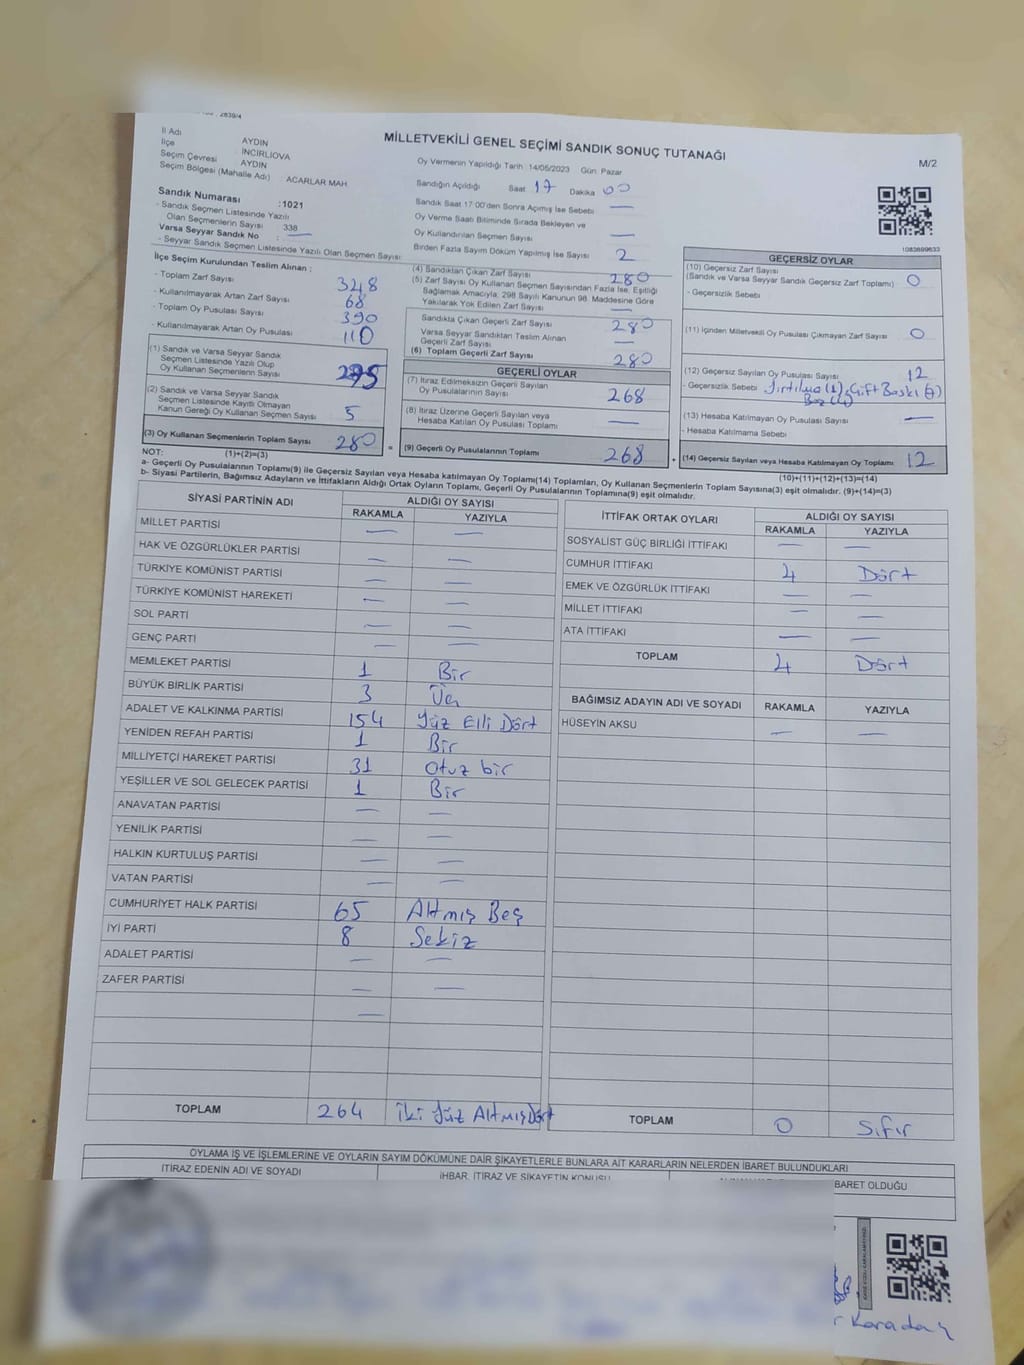 2839/4
MİLLETVEKİLİ GENEL SEÇİMİ SANDIK SONUÇ TUTANAĞI
M/2
İl Adı AYDIN
İlçe İNCİRLİOVA
Seçim Çevresi AYDIN
Seçim Bölgesi (Mahalle Adı) ACARLAR MAH
Sandık Numarası :1021
- Sandık Seçmen Listesinde Yazılı
Olan Seçmenlerin Sayısı 338
Varsa Seyyar Sandık No : —
- Seyyar Sandık Seçmen Listesinde Yazılı Olan Seçmen Sayısı
Oy Vermenin Yapıldığı Tarih :14/05/2023 Gün: Pazar
Sandığın Açıldığı Saat 17 Dakika 00
Sandık Saat 17:00'den Sonra Açılmış İse Sebebi —
Oy Verme Saati Bitiminde Sırada Bekleyen ve
Oy Kullandırılan Seçmen Sayısı —
Birden Fazla Sayım Döküm Yapılmış İse Sayısı 2
1083699633
İlçe Seçim Kurulundan Teslim Alınan :
- Toplam Zarf Sayısı 348
- Kullanılmayarak Artan Zarf Sayısı 68
- Toplam Oy Pusulası Sayısı 390
- Kullanılmayarak Artan Oy Pusulası 110
(1) Sandık ve Varsa Seyyar Sandık
Seçmen Listesinde Yazılı Olup
Oy Kullanan Seçmenlerin Sayısı
(2) Sandık ve Varsa Seyyar Sandık
Seçmen Listesinde Kayıtlı Olmayan
Kanun Gereği Oy Kullanan Seçmen Sayısı 5
(3) Oy Kullanan Seçmenlerin Toplam Sayısı 280 =
(4) Sandıktan Çıkan Zarf Sayısı 280
(5) Zarf Sayısı Oy Kullanan Seçmen Sayısından Fazla İse, Eşitliği
Sağlamak Amacıyla; 298 Sayılı Kanunun 98. Maddesine Göre
Yakılarak Yok Edilen Zarf Sayısı —
Sandıkta Çıkan Geçerli Zarf Sayısı 280
Varsa Seyyar Sandıktan Teslim Alınan
Geçerli Zarf Sayısı —
(6) Toplam Geçerli Zarf Sayısı 280
GEÇERLİ OYLAR
(7) İtiraz Edilmeksizin Geçerli Sayılan
Oy Pusulalarının Sayısı 268
(8) İtiraz Üzerine Geçerli Sayılan veya
Hesaba Katılan Oy Pusulası Toplamı —
(9) Geçerli Oy Pusulalarının Toplamı 268 +
GEÇERSİZ OYLAR
(10) Geçersiz Zarf Sayısı 0
(Sandık ve Varsa Seyyar Sandık Geçersiz Zarf Toplamı)
- Geçersizlik Sebebi
(11) İçinden Milletvekili Oy Pusulası Çıkmayan Zarf Sayısı 0
(12) Geçersiz Sayılan Oy Pusulası Sayısı 12
- Geçersizlik Sebebi Yırtılma (1), Çift Baskı (7)
Boz (4)
(13) Hesaba Katılmayan Oy Pusulası Sayısı —
- Hesaba Katılmama Sebebi
(14) Geçersiz Sayılan veya Hesaba Katılmayan Oy Toplamı 12
NOT: (1)+(2)=(3) (10)+(11)+(12)+(13)=(14)
a- Geçerli Oy Pusulalarının Toplamı(9) ile Geçersiz Sayılan veya Hesaba katılmayan Oy Toplamı(14) Toplamları, Oy Kullanan Seçmenlerin Toplam Sayısına(3) eşit olmalıdır. (9)+(14)=(3)
b- Siyasi Partilerin, Bağımsız Adayların ve İttifakların Aldığı Ortak Oyların Toplamı, Geçerli Oy Pusulalarının Toplamına(9) eşit olmalıdır.
SİYASİ PARTİNİN ADI ALDIĞI OY SAYISI
RAKAMLA YAZIYLA
MİLLET PARTİSİ — —
HAK VE ÖZGÜRLÜKLER PARTİSİ — —
TÜRKİYE KOMÜNİST PARTİSİ — —
TÜRKİYE KOMÜNİST HAREKETİ — —
SOL PARTİ — —
GENÇ PARTİ — —
MEMLEKET PARTİSİ 1 Bir
BÜYÜK BİRLİK PARTİSİ 3 Üç
ADALET VE KALKINMA PARTİSİ 154 Yüz Elli Dört
YENİDEN REFAH PARTİSİ 1 Bir
MİLLİYETÇİ HAREKET PARTİSİ 31 Otuz bir
YEŞİLLER VE SOL GELECEK PARTİSİ 1 Bir
ANAVATAN PARTİSİ — —
YENİLİK PARTİSİ — —
HALKIN KURTULUŞ PARTİSİ — —
VATAN PARTİSİ — —
CUMHURİYET HALK PARTİSİ 65 Altmış Beş
İYİ PARTİ 8 Sekiz
ADALET PARTİSİ — —
ZAFER PARTİSİ — —
—
TOPLAM 264 İki Yüz Altmış Dört
İTTİFAK ORTAK OYLARI ALDIĞI OY SAYISI
RAKAMLA YAZIYLA
SOSYALİST GÜÇ BİRLİĞİ İTTİFAKI — —
CUMHUR İTTİFAKI 4 Dört
EMEK VE ÖZGÜRLÜK İTTİFAKI — —
MİLLET İTTİFAKI — —
ATA İTTİFAKI — —
TOPLAM 4 Dört
BAĞIMSIZ ADAYIN ADI VE SOYADI RAKAMLA YAZIYLA
HÜSEYİN AKSU — —
TOPLAM 0 Sıfır
OYLAMA İŞ VE İŞLEMLERİNE VE OYLARIN SAYIM DÖKÜMÜNE DAİR ŞİKAYETLERLE BUNLARA AİT KARARLARIN NELERDEN İBARET BULUNDUKLARI
İTİRAZ EDENİN ADI VE SOYADI İHBAR, İTİRAZ VE ŞİKAYETİN KONUSU İBARET OLDUĞU